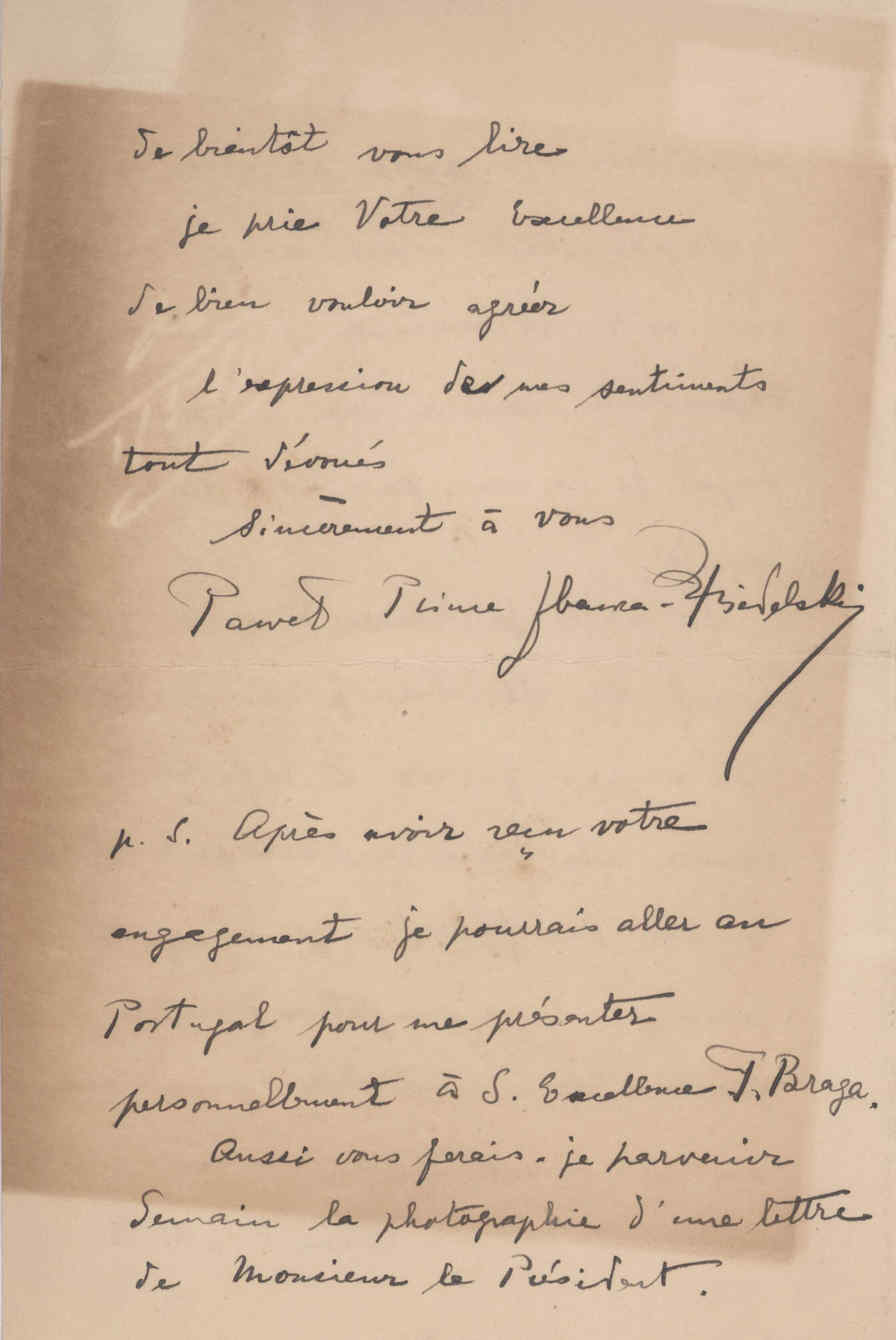 de bientôt vous lire
je prie Votre Excellence
de bien vouloir agréer
l'expression de mes sentiments
tout dévoués
Sincèrement à vous
Paweł Prince
p. S. Après avoir reçu votre
engagement je pourrais aller au
Portugal pour me présenter
personnellement à S. Excellence T. Braga.
Aussi vous ferais-je parvenir
demain la photographie d'une lettre
de Monsieur le Président.